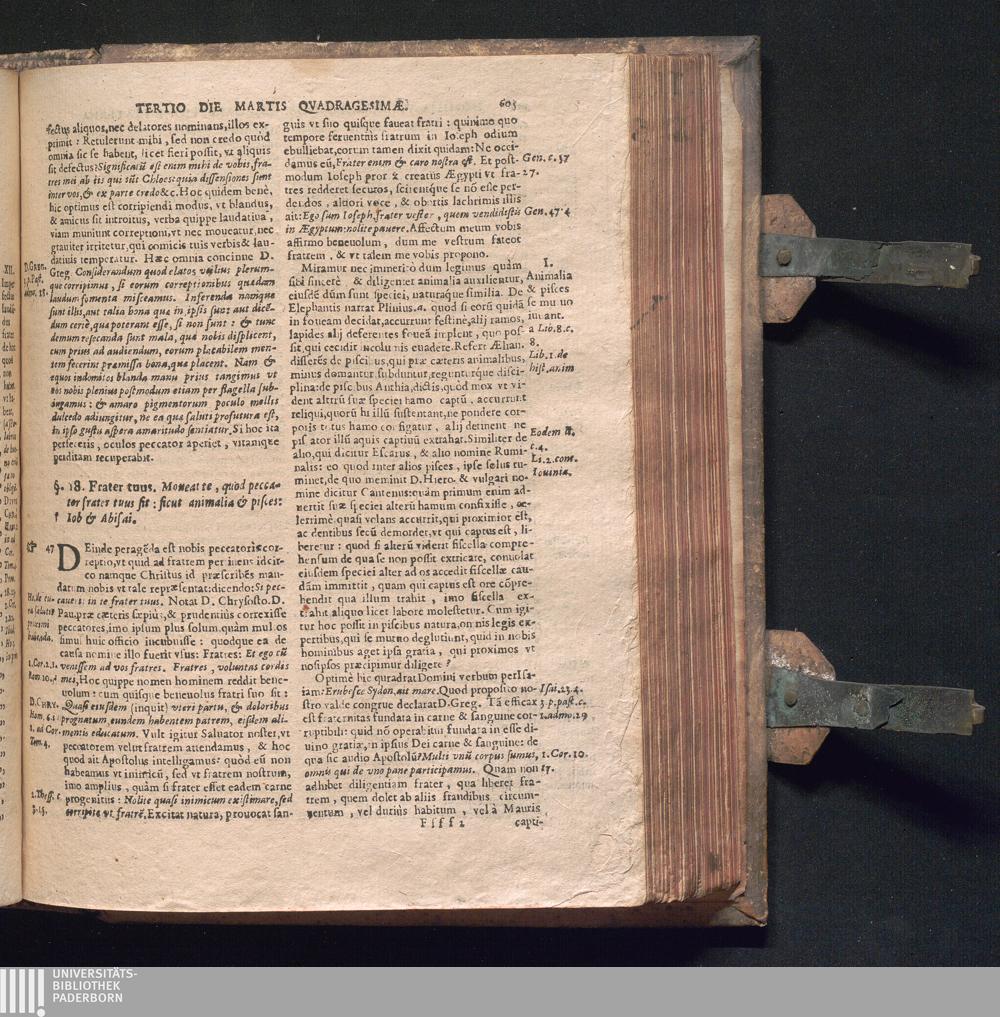 TERTIO DIE MARTIS QVADRAGESIMÆ. 603
fectus aliquos, nec delatores nominans, illos ex-
primit: Retulerunt mihi, sed non credo quod
omnia sic se habent, licet fieri possit, vt aliquis
sit defectus: Significatū est enim mihi de vobis, fra-
tres mei ab iis qui sūt Chloes: quia dissensiones sunt
inter vos, & ex parte credo &c. Hoc quidem benè,
hic optimus est corripiendi modus, vt blandus,
& amicus sit introitus, verba quippe laudatiua,
viam muniunt correptioni, vt nec moueatur, nec
grauiter irritetur, qui comicis tuis verbis & lau-
datiuis temperatur. Hæc omnia concinne D.
Greg. Considerandum quod elatos vtilius plerum-
que corripimus, si eorum correptionibus quædam
laudum fomenta misceamus. Inferenda namque
sunt illis, aut talia bona quæ in ipsis sunt: aut dicē-
dum certè, quæ poterant esse, si non sunt: & tunc
demum resecanda sunt mala, quæ nobis displicent,
cum prius ad audiendum, eorum placabilem men-
tem fecerint præmissa bona, quæ placent. Nam &
equos indomitos blanda manu prius tangimus vt
eos nobis plenius postmodum etiam per flagella sub-
iugamus: & amaro pigmentorum poculo mellis
dulcedo adiungitur, ne ea quæ saluti profutura est,
in ipso gustu aspera amaritudo sentiatur. Si hoc ita
perfeceris, oculos peccator aperiet, vitamque
perditam recuperabit.
D. Greg.
3. p. Past.
admo. 18.
§. 18. Frater tuus. Moueat te, quod pecca-
tor frater tuus sit: sicut animalia & pisces:
Iob & Abisai.
47 DEinde peragēda est nobis peccatoris cor-
reptio, vt quid ad fratrem pertinens idcir-
co namque Christus id præscribēs man-
datum nobis vt tale repræsentat: dicendo: Si pec-
cauerit in te frater tuus. Notat D. Chrysosto. D.
Pau. præ cæteris sępiùs, & prudentiùs correxisse
peccatores, imo ipsum plus solum quàm multos
simul huic officio incubuisse: quodque ea de
causa nomine illo fuerit vsus: Fratres: Et ego cū
venissem ad vos fratres. Fratres, voluntas cordis
mei, Hoc quippe nomen hominem reddit bene-
uolum: cum quisque beneuolus fratri suo sit:
Quasi eiusdem (inquit) vteri partu, & doloribus
prognatum, eundem habentem patrem, eisdem ali-
mentis educatum. Vult igitur Saluator noster, vt
peccatorem velut fratrem attendamus, & hoc
quod ait Apostolus intelligamus: quòd eū non
habeamus vt inimicū, sed vt fratrem nostrum,
imo amplius, quàm si frater esset eadem carne
progenitus: Nolite quasi inimicum existimare, sed
corripite vt fratrē. Excitat natura, prouocat san-
1. Cor. 2. 1.
Rom 10.
D. CHRY.
Hom. 6. s.
1. ad Cor.
Tom. 4.
2. Thess. c.
3. 15.
guis vt suo quisque faueat fratri: quinimo quo
tempore feruentius fratrum in Ioseph odium
ebulliebat, eorum tamen dixit quidam: Ne occi-
damus eū, Frater enim & caro nostra est. Et post-
modum Ioseph prorex creatus Ægypti vt fra-
tres redderet securos, scirentque se nō esse per-
dendos, altiori voce, & obortis lachrimis illis
ait: Ego sum Ioseph, frater vester, quem vendidistis
in Ægyptum: nolite pauere. Affectum meum vobis
affirmo beneuolum, dum me vestrum fateor
fratrem, & vt talem me vobis propono.
Gen. c. 37
27.
Gen. 47. 4
Miramur nec immeritò dum legimus quàm
sibi sincerè & diligenter animalia auxilientur,
eiusdē dum sunt speciei, naturæque similia. De
Elephantis narrat Plinius. a. quod si eorū quidā
in foueam decidat, accurrunt festinè, alij ramos,
lapides alij deferentes foueā implent, quo pos-
sit, qui cecidit incolumis euadere. Refert Ælian.
disserēs de piscibus, qui præ cæteris animalibus,
minus domantur, subduntur, reguntúrque disci-
plina: de piscibus Anthia, dictis, quòd mox vt vi-
dent alterū suæ speciei hamo captū, accurrunt
reliqui, quorū hi illū sustentant, ne pondere cor-
poris totus hamo configatur, alij detinent ne
piscator illū aquis captiuū extrahat. Similiter de
alio, qui dicitur Escarus, & alio nomine Rumi-
nalis: eo quod inter alios pisces, ipse solus ru-
minet, de quo meminit D. Hiero. & vulgari no-
mine dicitur Cantenus: quàm primum enim ad-
uertit suæ speciei alterū hamum confixisse, ce-
lerrimè quasi volans accurrit, qui proximior est,
ac dentibus secū demorder, vt qui captus est, li-
beretur: quod si alterū viderit fiscella compre-
hensum de qua se non possit extricare, conuolat
eiusdem speciei alter ad os accedit fiscellæ cau-
dām immittit, quam qui captus est ore cōpre-
hendit qua illum trahit, imo fiscella ex-
trahit aliquo licet labore molestetur. Cum igi-
tur hoc possit in piscibus natura, omnis legis ex-
pertibus, qui se mutuo deglutiunt, quid in nobis
hominibus aget ipsa gratia, qui proximos vt
nosipsos præcipimur diligere?
I.
Animalia
& pisces
se mutuo
iuuant.
a Lib. 8. c.
8.
Lib. 1. de
hist. anim
Eodem li.
c. 4.
Li. 2. cont.
Iouinia.
Optimè hic quadrat Domini verbum per Isa-
iam: Erubesce Sydon, ait mare. Quod proposito no-
stro valde congrue declarat D. Greg. Tā efficax
est fraternitas fundata in carne & sanguine cor-
ruptibili: quid nō operabitur fundata in esse di-
uino gratiæ, in ipsius Dei carne & sanguine: de
qua sic audio Apostolū? Multi vnū corpus sumus,
omnes qui de vno pane participamus. Quam non
adhibet diligentiam frater, qua liberet fra-
trem, quem dolet ab aliis fraudibus circum-
uentum, vel durius habitum, vel à Mauris
Isai. 23. 4.
3 p. past. c.
1. admo. 29
1. Cor. 10.
17.
Ffff 2 capti-
UNIVERSITÄTS-
BIBLIOTHEK
PADERBORN